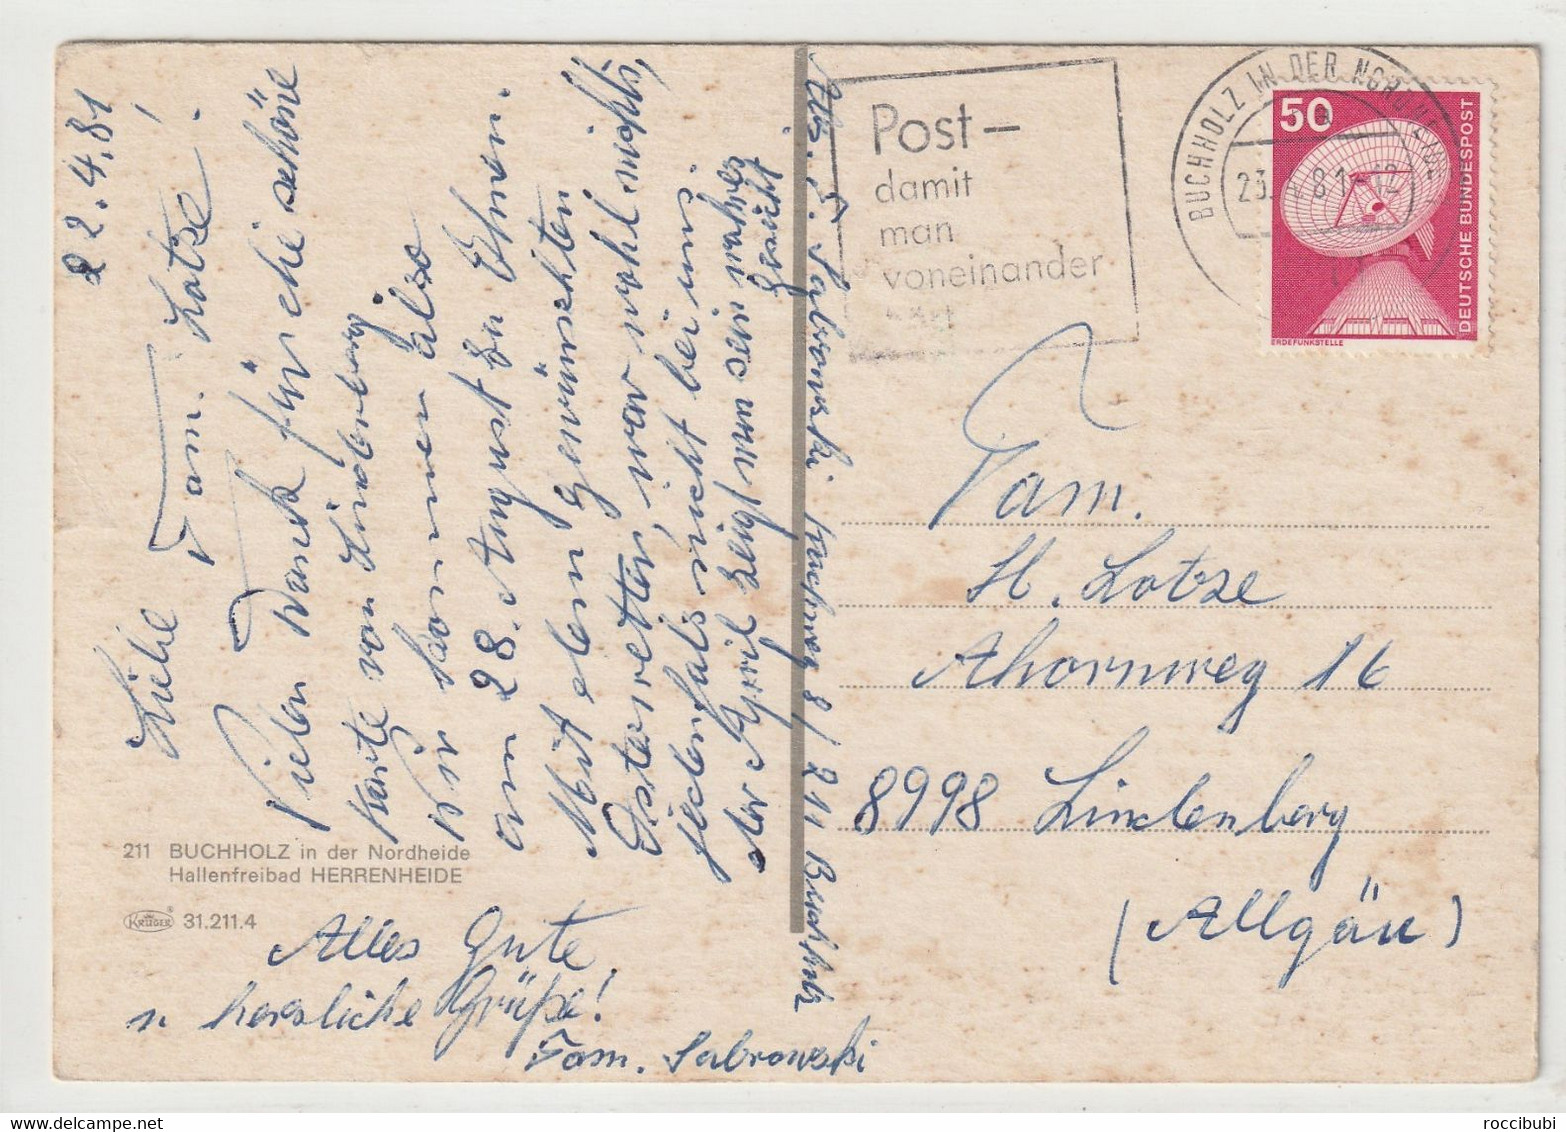 22.4.81
Liebe Fam. Lotze!
Vielen Dank für die schöne
Karte von Lindenberg.
Wir kommen also
am 28. August zu Ihnen.
Mit dem gewünschten
Osterwetter, war wohl nichts,
jedenfals nicht bei uns
der April zeigt nun sein wahres
Gesicht
Alles Gute
u herzliche Grüße!
Fam. Sabrowski
211 BUCHHOLZ in der Nordheide
Hallenfreibad HERRENHEIDE
KRÜGER ® 31.211.4
Abs. E. Sabrowski 8 / 211 Buchholz
Post –
damit
man
voneinander
BUCHHOLZ IN DER NORDHEIDE
23. 4. 81-12
50
DEUTSCHE BUNDESPOST
ERDEFUNKSTELLE
Fam.
H. Lotze
Ahornweg 16
8998 Lindenberg
(Allgäu)
roccibubi